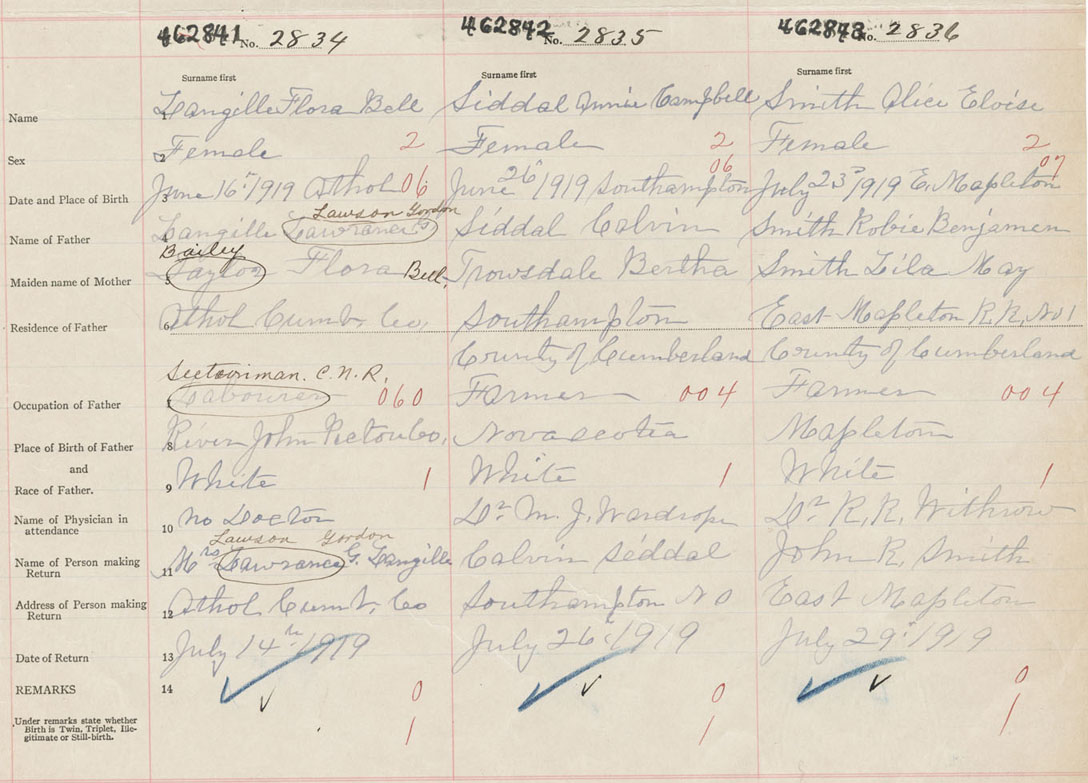 462841 No. 2834 462842 No. 2835 462843 No. 2836
Surname first Surname first Surname first
Name 1 Langille Flora Bell Siddal Annie Campbell Smith Alice Eloise
Sex 2 Female 2 Female 2 Female 2
06 07
Date and Place of Birth 3 June 16th 1919 Athol 06 June 26th 1919 Southampton July 23rd 1919 E. Mapleton
Lawson Gordon
Name of Father 4 Langille Lawrance Siddal Calvin Smith Robie Benjamen
Bailey
Maiden name of Mother 5 Taylor Flora Bell, Trowsdale Bertha Smith Lila May
Residence of Father 6 Athol Cumb. Co, Southampton East Mapleton R.R. No 1
County of Cumberland County of Cumberland
Sectionman. C.N.R.
Occupation of Father 7 Labourer 060 Farmer 004 Farmer 004
Place of Birth of Father 8 River John Pictou Co, Nova scotia Mapleton
and
Race of Father. 9 White 1 White 1 White 1
Name of Physician in
attendance 10 no Doctor Dr M. J. Wardrope Dr R. R. Withrow
Lawson Gordon
Name of Person making
Return 11 Mrs Lawrance G. Langille Calvin Siddal John R. Smith
Address of Person making
Return 12 Athol Cumb. Co Southampton N S East Mapleton
Date of Return 13 July 14th 1919 July 26th 1919 July 29th 1919
REMARKS 14 0 0 0
Under remarks state whether
Birth is Twin, Triplet, Ille-
gitimate or Still-birth. 1 1 1